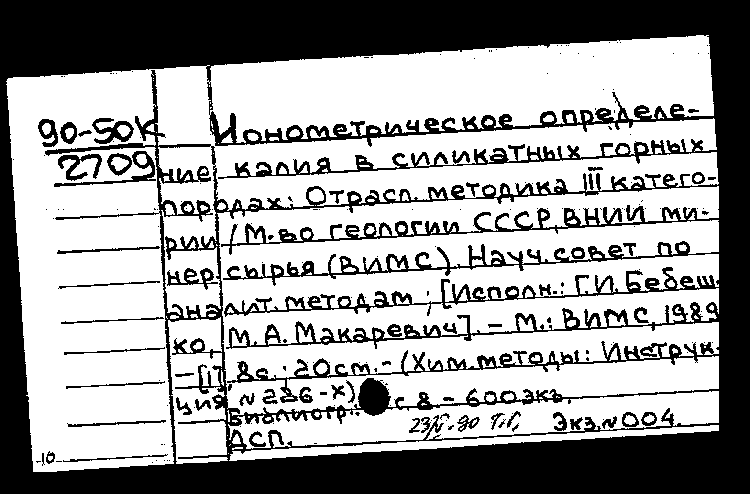 90-50К
2709
Ионометрическое определе-
ние калия в силикатных горных
породах: Отрасл. методика III катего-
рии / М-во геологии СССР, ВНИИ ми-
нер. сырья (ВИМС). Науч. совет по
аналит. методам ; [Исполн.: Г.И. Бебеш-
ко, М.А. Макаревич]. - М.: ВИМС, 1989
- [1], 8 с. ; 20 см. - (Хим. методы: Инструк-
ция; № 236-Х)
Библиогр.: с. 8. - 600 экз.
ДСП. 23/V-90 Экз. № 004.
10